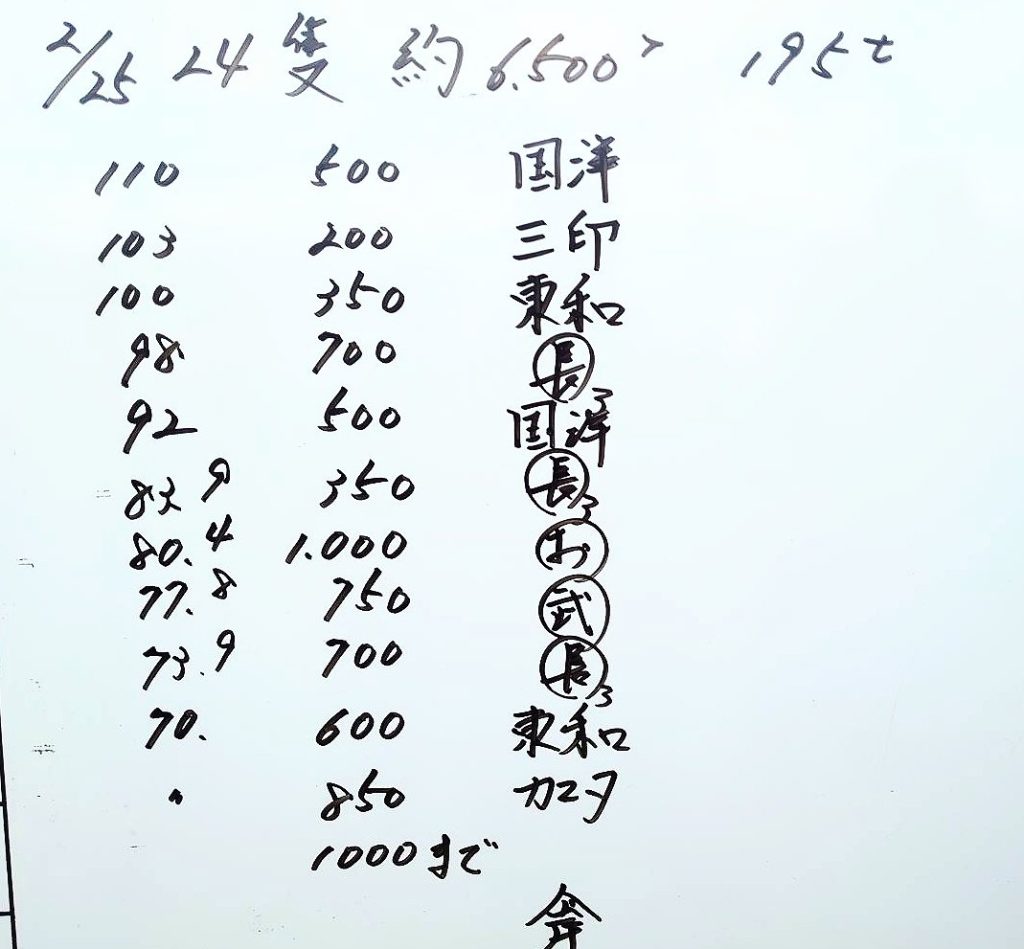 2/25 24隻 約6.500 195t
110 500 国洋
103 200 三印
100 350 東和
98 700 長 3
92 500 国洋
83.9 350 長 3
80.4 1.000 お
77.8 750 武
73.9 700 長 3
70. 600 東和
〃 850 カニタ
1000まで